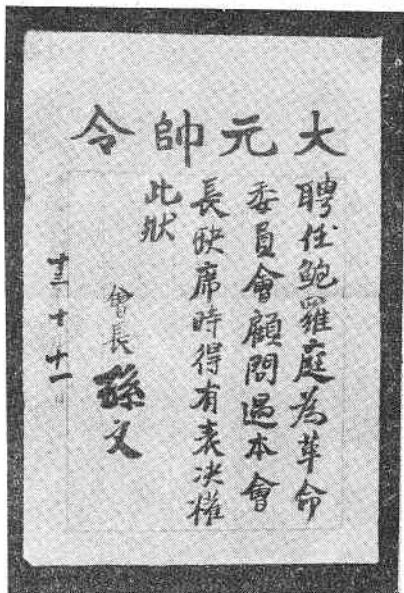 大元帥令
聘任鮑羅庭為革命
委員會顧問遇本會
長缺席時得有表决權
此狀
會長孫文
十三 十 十一